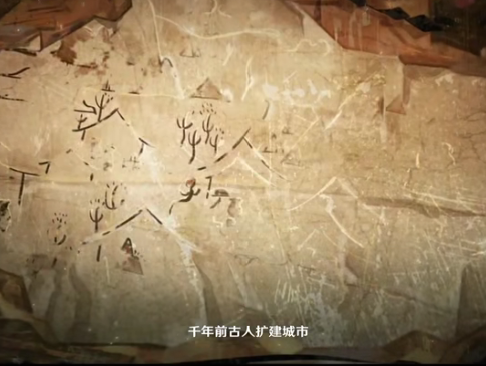 千年前古人扩建城市